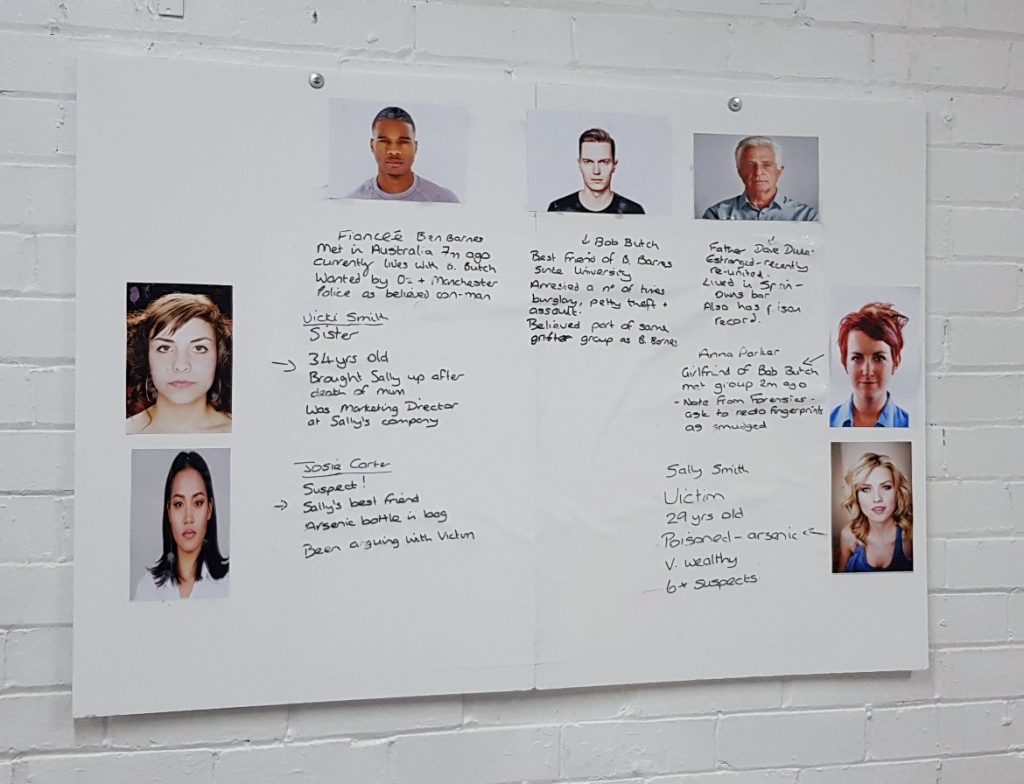 Fianceé Ben Barnes
Met in Australia 7m ago
Currently lives with B. Butch
Wanted by Oz + Manchester
Police as believed con-man
Bob Butch
Best Friend of B. Barnes
Since University
Arrested a nº of times
burglary, petty theft +
assault.
Believed part of same
grifter group as B. Barnes
Father Dave Duke
Estranged-recently
re-united.
Lived in Spain -
Owns bar
Also has prison
record.
Vicki Smith
Sister
34yrs old
Brought Sally up after
death of mum
Was Marketing Director
at Sally's company
Anna Parker
Girlfriend of Bob Butch
met group 2m ago
- Note from Forensics -
ask to redo fingerprints
as smudged
Josie Carter
Suspect!
Sally's best friend
Arsenic bottle in bag
Been arguing with Victim
Sally Smith
Victim
29yrs old
Poisoned - arsenic
V. wealthy
6 * suspects